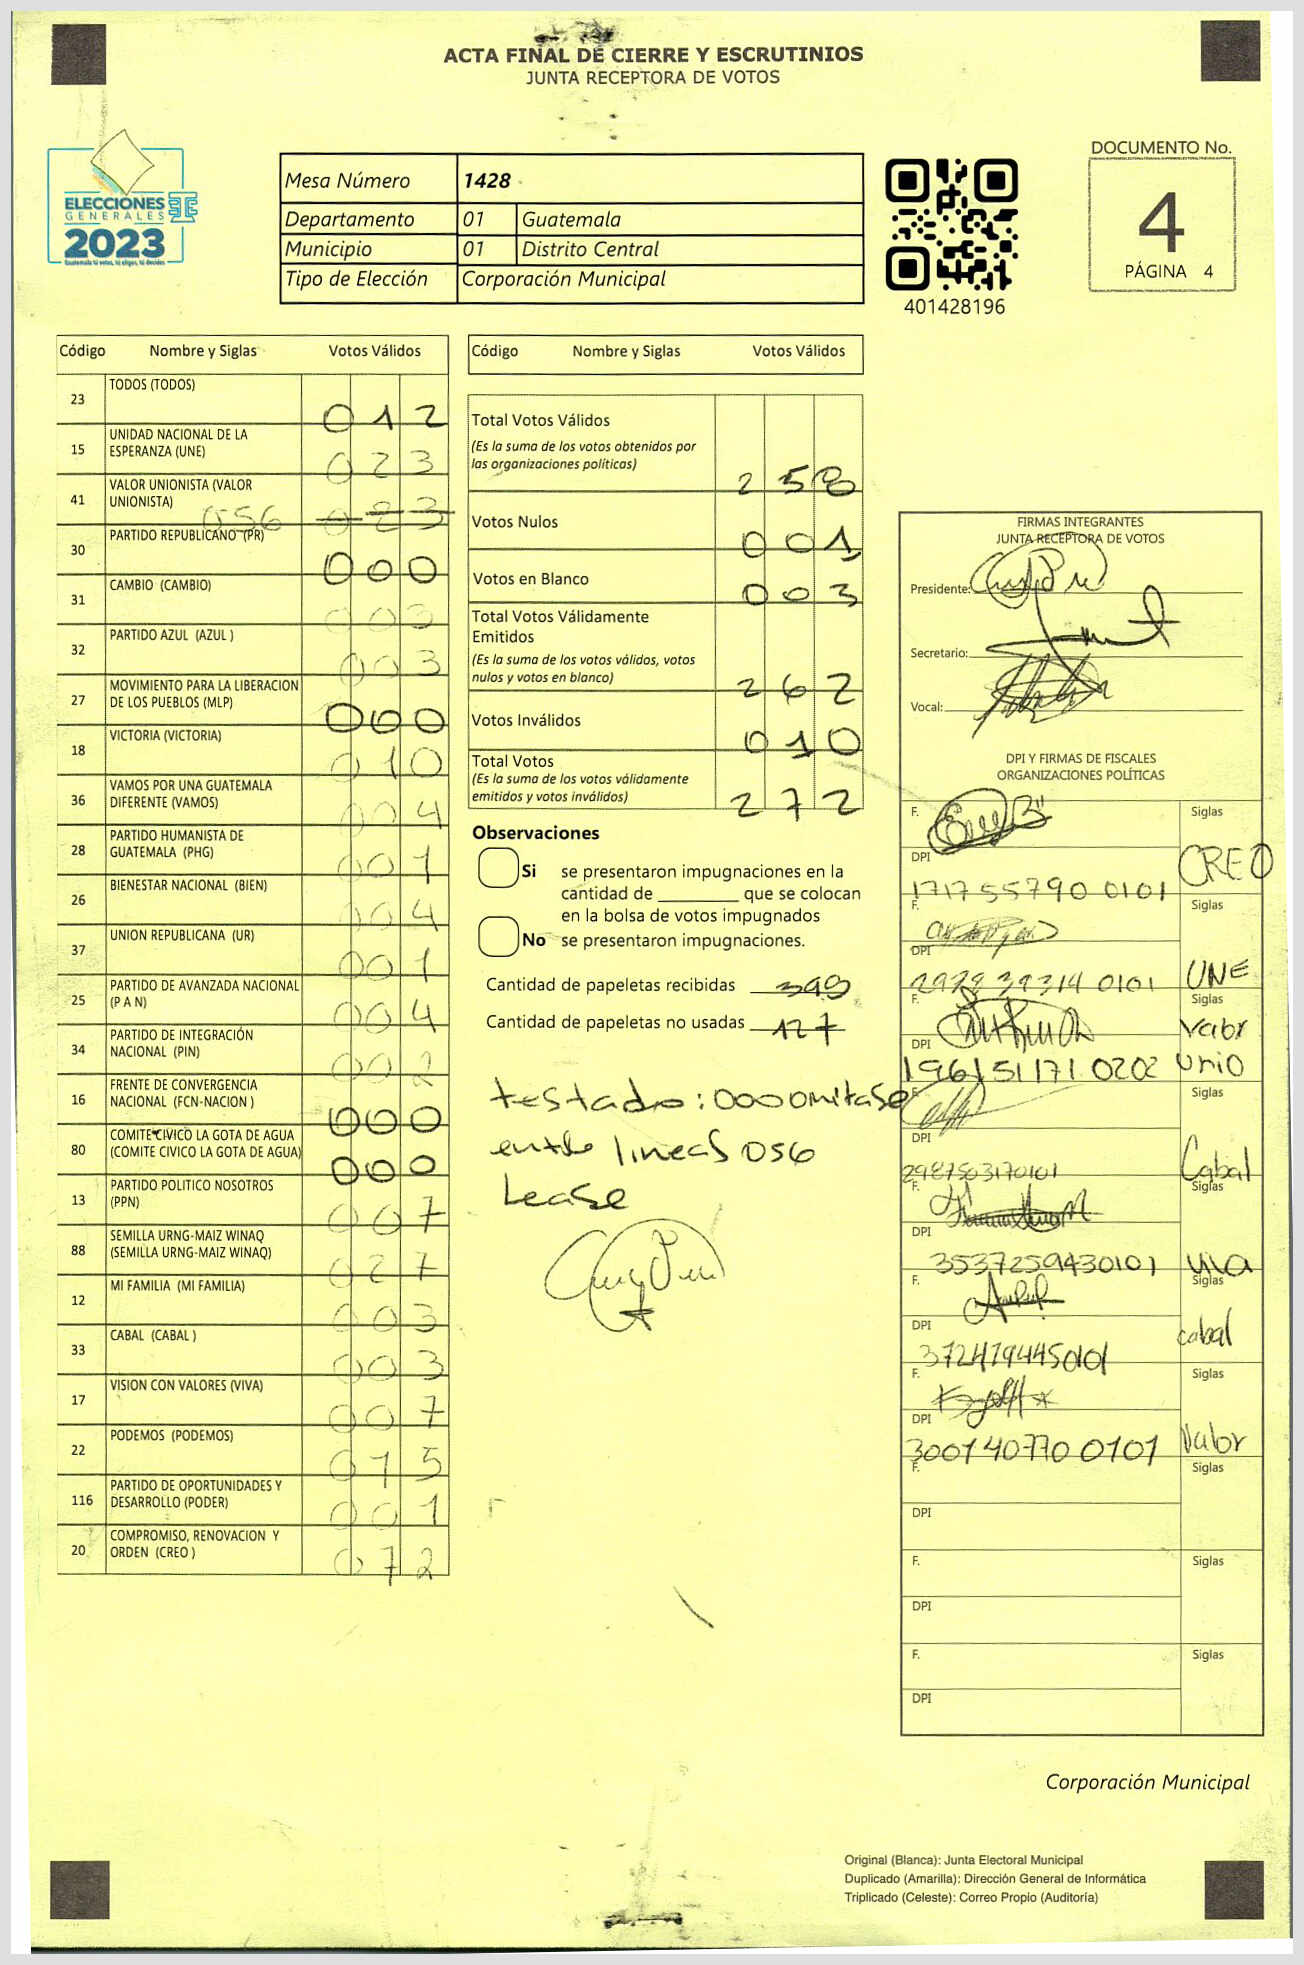 ACTA FINAL DE CIERRE Y ESCRUTINIOS
JUNTA RECEPTORA DE VOTOS
ELECCIONES
GENERALES
2023
Guatemala tú votas, tú eliges, tú decides
Mesa Número 1428
Departamento 01 Guatemala
Municipio 01 Distrito Central
Tipo de Elección Corporación Municipal
401428196
DOCUMENTO No.
4
PÁGINA 4
Código Nombre y Siglas Votos Válidos
23 TODOS (TODOS) 012
15 UNIDAD NACIONAL DE LA ESPERANZA (UNE) 023
41 VALOR UNIONISTA (VALOR UNIONISTA) 056 023
30 PARTIDO REPUBLICANO (PR) 000
31 CAMBIO (CAMBIO) 003
32 PARTIDO AZUL (AZUL ) 003
27 MOVIMIENTO PARA LA LIBERACION DE LOS PUEBLOS (MLP) 000
18 VICTORIA (VICTORIA) 010
36 VAMOS POR UNA GUATEMALA DIFERENTE (VAMOS) 004
28 PARTIDO HUMANISTA DE GUATEMALA (PHG) 001
26 BIENESTAR NACIONAL (BIEN) 004
37 UNION REPUBLICANA (UR) 001
25 PARTIDO DE AVANZADA NACIONAL (P A N) 004
34 PARTIDO DE INTEGRACIÓN NACIONAL (PIN) 002
16 FRENTE DE CONVERGENCIA NACIONAL (FCN-NACION ) 000
80 COMITE CIVICO LA GOTA DE AGUA (COMITE CIVICO LA GOTA DE AGUA) 000
13 PARTIDO POLITICO NOSOTROS (PPN) 007
88 SEMILLA URNG-MAIZ WINAQ (SEMILLA URNG-MAIZ WINAQ) 027
12 MI FAMILIA (MI FAMILIA) 003
33 CABAL (CABAL ) 003
17 VISION CON VALORES (VIVA) 007
22 PODEMOS (PODEMOS) 015
116 PARTIDO DE OPORTUNIDADES Y DESARROLLO (PODER) 001
20 COMPROMISO, RENOVACION Y ORDEN (CREO ) 072
Código Nombre y Siglas Votos Válidos
Total Votos Válidos
(Es la suma de los votos obtenidos por
las organizaciones politicas) 258
Votos Nulos 001
Votos en Blanco 003
Total Votos Válidamente
Emitidos
(Es la suma de los votos válidos, votos
nulos y votos en blanco) 262
Votos Inválidos 010
Total Votos
(Es la suma de los votos válidamente
emitidos y votos inválidos) 272
Observaciones
Si se presentaron impugnaciones en la
cantidad de ________ que se colocan
en la bolsa de votos impugnados
No se presentaron impugnaciones.
Cantidad de papeletas recibidas 399
Cantidad de papeletas no usadas 127
testado: 000 omitase
entre lineas 056
Lease
FIRMAS INTEGRANTES
JUNTA RECEPTORA DE VOTOS
Presidente:
Secretario:
Vocal:
DPI Y FIRMAS DE FISCALES
ORGANIZACIONES POLÍTICAS
F. Siglas
DPI 1717557900101 CREO
F. Siglas
DPI 2978393140101 UNE
F. Siglas
DPI 1961511710202 Valor Unio
F. Siglas
DPI 2987503170101 Cabal
F. Siglas
DPI 3537259430101 Viva
F. Siglas
DPI 3724794450101 cabal
F. Siglas
DPI 3001407700101 Valor
F. Siglas
DPI
F. Siglas
DPI
F. Siglas
DPI
Corporación Municipal
Original (Blanca): Junta Electoral Municipal
Duplicado (Amarilla): Dirección General de Informática
Triplicado (Celeste): Correo Propio (Auditoría)